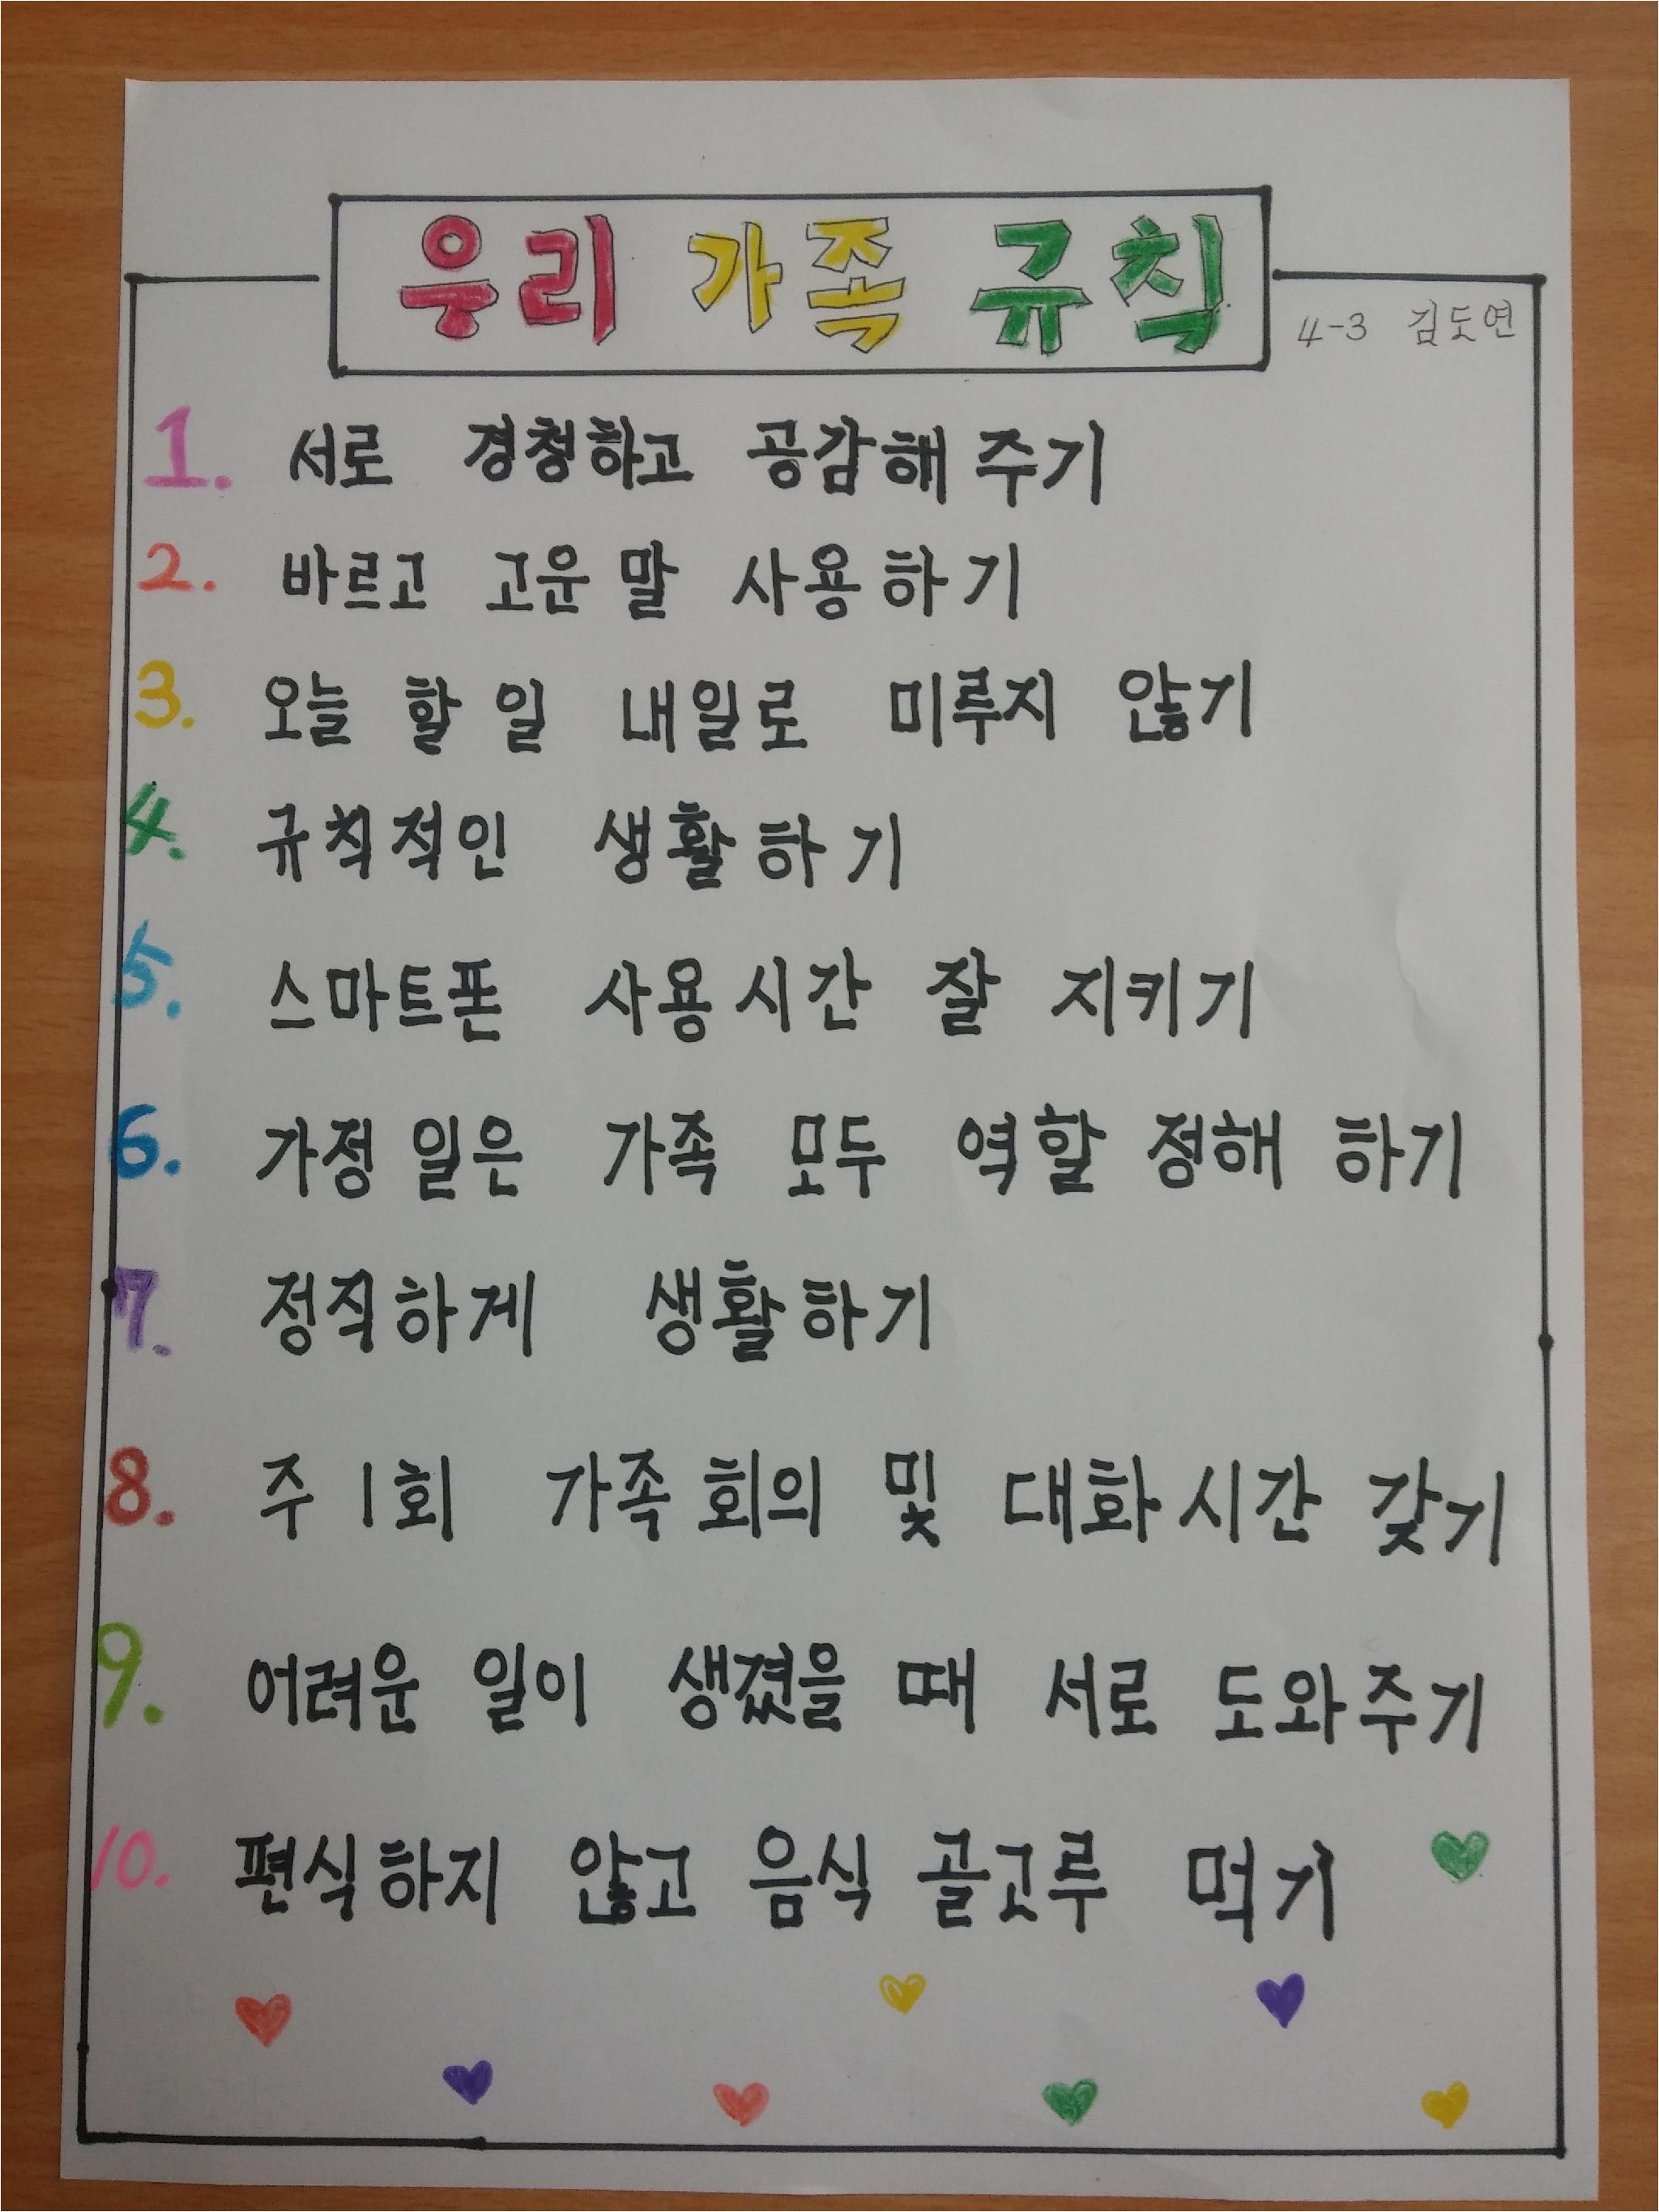 우리 가족 규칙
4-3 김도연
1. 서로 경청하고 공감해 주기
2. 바르고 고운 말 사용하기
3. 오늘 할 일 내일로 미루지 않기
4. 규칙적인 생활하기
5. 스마트폰 사용 시간 잘 지키기
6. 가정 일은 가족 모두 역할 정해 하기
7. 정직하게 생활하기
8. 주 1회 가족 회의 및 대화 시간 갖기
9. 어려운 일이 생겼을 때 서로 도와주기
10. 편식하지 않고 음식 골고루 먹기